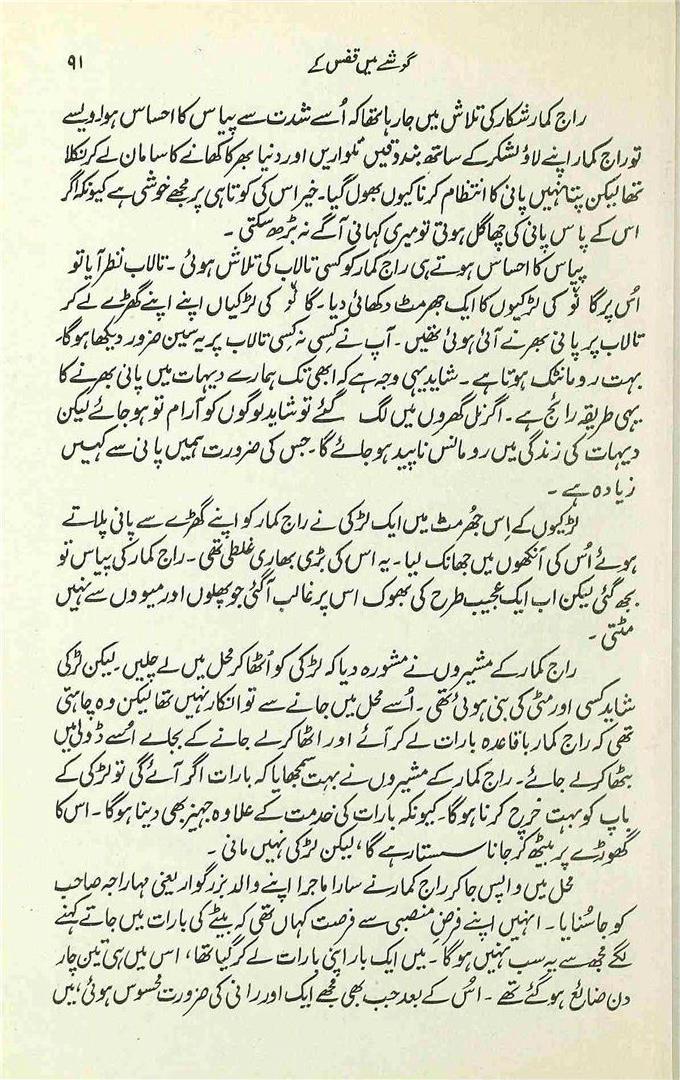 گوشے میں قفس کے ۹۱
راج کمار شکار کی تلاش میں جا رہا تھا کہ اُسے شدت سے پیاس کا احساس ہوا۔ ویسے
تو راج کمار اپنے لاؤ لشکر کے ساتھ بندوقیں تلواریں اور دنیا بھر کا کھانے کا سامان لے کر نکلا
تھا لیکن پتا نہیں پانی کا انتظام کرنا کیوں بھول گیا۔ خیر اس کی کوتاہی پر مجھے خوشی ہے کیونکہ اگر
اس کے پاس پانی کی چھاگل ہوتی تو میری کہانی آگے نہ بڑھ سکتی ۔
پیاس کا احساس ہوتے ہی راج کمار کو کسی تالاب کی تلاش ہوئی ۔ تالاب نظر آیا تو
اُس پر گا نوٗ کی لڑکیوں کا ایک جھرمٹ دکھائی دیا ۔ گا نوٗ کی لڑکیاں اپنے اپنے گھڑے لے کر
تالاب پر پانی بھرنے آئی ہوئی تھیں ۔ آپ نے کسی نہ کسی تالاب پر یہ سین ضرور دیکھا ہوگا۔
بہت رومانٹک ہوتا ہے ۔ شاید یہی وجہ ہے کہ ابھی تک ہمارے دیہات میں پانی بھرنے کا
یہی طریقہ رائج ہے ۔ اگر نل گھروں میں لگ گئے تو شاید لوگوں کو آرام تو ہو جائے لیکن
دیہات کی زندگی میں رومانس ناپید ہو جائے گا۔ جس کی ضرورت ہمیں پانی سے کہیں
زیادہ ہے ۔
لڑکیوں کے اِس جھُرمٹ میں ایک لڑکی نے راج کمار کو اپنے گھڑے سے پانی پلاتے
ہوئے اُس کی آنکھوں میں جھانک لیا۔ یہ اس کی بڑی بھاری غلطی تھی ۔ راج کمار کی پیاس تو
بجھ گئی لیکن اب ایک عجیب طرح کی بھوک اس پر غالب آگئی جو پھلوں اور میووں سے نہیں
مٹتی ۔
راج کمار کے مشیروں نے مشورہ دیا کہ لڑکی کو اُٹھا کر محل میں لے چلیں ۔ لیکن لڑکی
شاید کسی اور مٹی کی بنی ہوئی تھی ۔ اُسے محل میں جانے سے تو انکار نہیں تھا لیکن وہ چاہتی
تھی کہ راج کمار باقاعدہ بارات لے کر آئے اور اٹھا کر لے جانے کے بجائے اُسے ڈولی میں
بٹھا کر لے جائے ۔ راج کمار کے مشیروں نے بہت سمجھایا کہ بارات اگر آئے گی تو لڑکی کے
باپ کو بہت خرچ کرنا ہوگا۔ کیونکہ بارات کی خدمت کے علاوہ جہیز بھی دینا ہوگا ۔ اس کا
گھوڑے پر بیٹھ کر جانا سستا رہے گا، لیکن لڑکی نہیں مانی ۔
محل میں واپس جا کر راج کمار نے سارا ماجرا اپنے والد بزرگوار یعنی مہاراجہ صاحب
کو جا سُنایا ۔ انہیں اپنے فرضِ منصبی سے فرصت کہاں تھی کہ بیٹے کی بارات میں جاتے کہنے
لگے مجھ سے یہ سب نہیں ہوگا ۔ میں ایک بار اپنی بارات لے کر گیا تھا، اس میں ہی تین چار
دن ضائع ہو گئے تھے ۔ اُس کے بعد جب بھی مجھے ایک اور رانی کی ضرورت محسوس ہوئی، میں